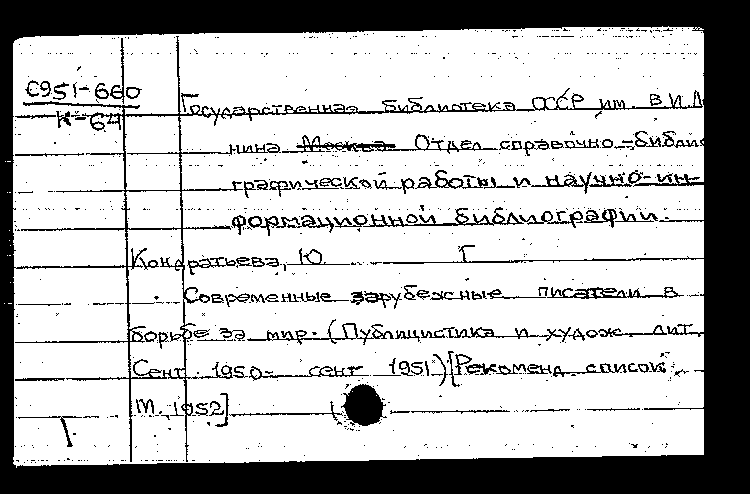 С951-660
К-64
Государственная библиотека СССР им. В.И.Ле
нина Москва Отдел справочно-библио
графической работы и научно-ин-
формационной библиографии.
Кондратьева, Ю Г
Современные зарубежные писатели в
борьбе за мир. (Публицистика и худож. лит.
Сент. 1950- сент 1951) [Рекоменд. список
М., 1952]